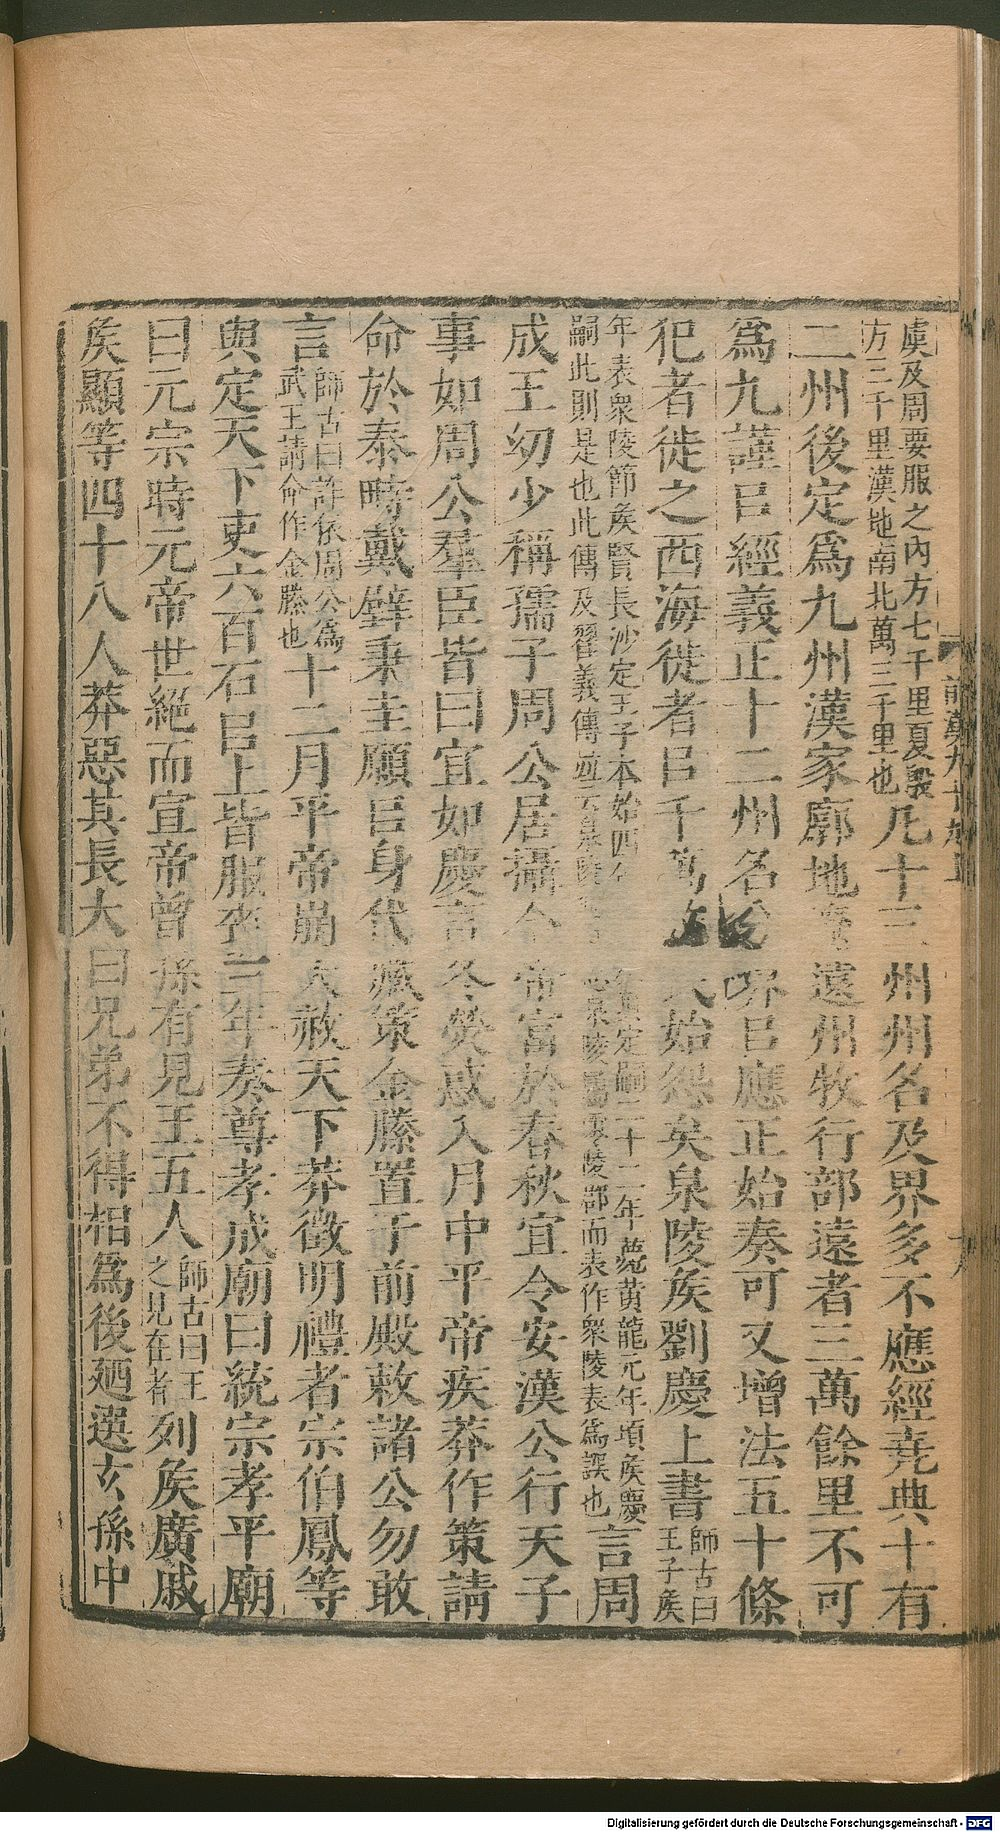 虞及周要服之內方七千里夏殷方三千里漢地南北萬三千里也凡十三州州名及界多不應經堯典十有
二州後定爲九州漢家廓地遠州牧行部遠者三萬餘里不可
爲九謹㠯經義正十二州名分界㠯應正始奏可又增法五十條
犯者徙之西海徙者㠯千萬始怨矣泉陵矦劉慶上書師古曰王子矦
年表衆陵節矦賢長沙定王子本始四年定嗣二十二年薨黃龍元年頃矦慶嗣此則是也此傳及翟義傳並云泉陵屬零陵郡而表作衆陵表爲誤也言周
成王幼少稱孺子周公居攝今帝富於春秋宜令安漢公行天子
事如周公羣臣皆曰宜如慶言冬熒惑入月中平帝疾莽作策請
命於泰畤戴璧秉圭願㠯身代藏策金縢置于前殿敕諸公勿敢
言師古曰詐依周公爲武王請命作金縢也十二月平帝崩大赦天下莽徵明禮者宗伯鳳等
與定天下吏六百石㠯上皆服喪三年奏尊孝成廟曰統宗孝平廟
曰元宗時元帝世絕而宣帝曾孫有見王五人師古曰王之見在者列矦廣戚
矦顯等四十八人莽惡其長大曰兄弟不得相爲後廼選玄孫中
前漢九十九上
Digitalisierung gefördert durch die Deutsche Forschungsgemeinschaft - DFG